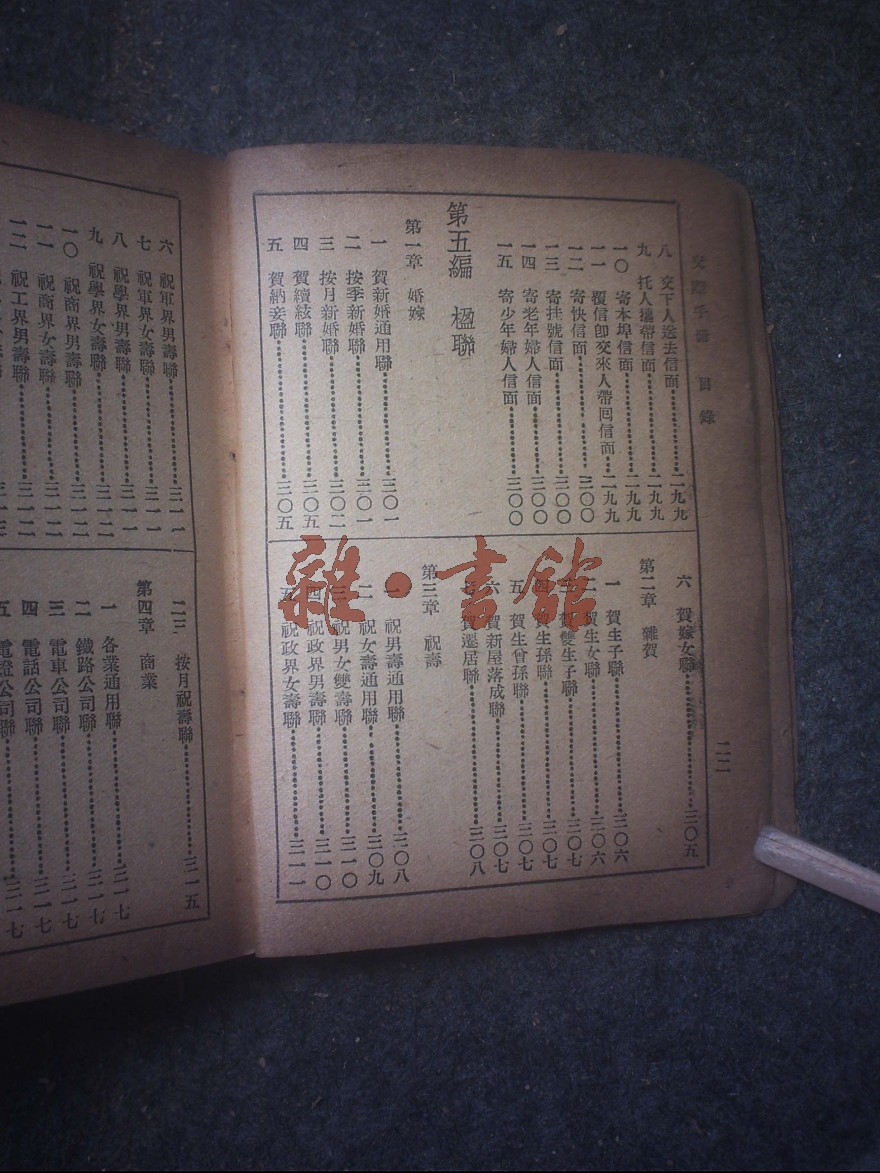 交際手册 目錄
二二
八 交下人送去信面 二九九
九 托人攜帶信面 二九九
一〇 寄本埠信面 二九九
一一 覆信卽交來人帶回信面 二九九
一二 寄快信面 三〇〇
一三 寄挂號信面 三〇〇
一四 寄老年婦人信面 三〇〇
一五 寄少年婦人信面 三〇〇
第五編 楹聯
第一章 婚嫁
一 賀新婚通用聯 三〇一
二 按季新婚聯 三〇一
三 按月新婚聯 三〇二
四 賀續絃聯 三〇五
五 賀納妾聯 三〇五
六 賀嫁女聯 三〇五
第二章 雜賀
一 賀生子聯 三〇六
二 賀生女聯 三〇六
三 賀雙生子聯 三〇七
四 賀生孫聯 三〇七
五 賀生曾孫聯 三〇七
六 賀新屋落成聯 三〇七
七 賀遷居聯 三〇八
第三章 祝壽
一 祝男壽通用聯 三〇八
二 祝女壽通用聯 三〇九
三 祝男女雙壽聯 三一〇
四 祝政界男壽聯 三一〇
五 祝政界女壽聯 三一一
六 祝軍界男壽聯 三一一
七 祝軍界女壽聯 三一一
八 祝學界男壽聯 三一一
九 祝學界女壽聯 三一二
一〇 祝商界男壽聯 三一二
一一 祝商界女壽聯 三一二
一二 祝工界男壽聯
二三 按月祝壽聯 三一五
第四章 商業
一 各業通用聯 三一七
二 鐵路公司聯 三一七
三 電車公司聯 三一七
四 電話公司聯 三一七
五 電燈公司聯 三一七
雜·書館